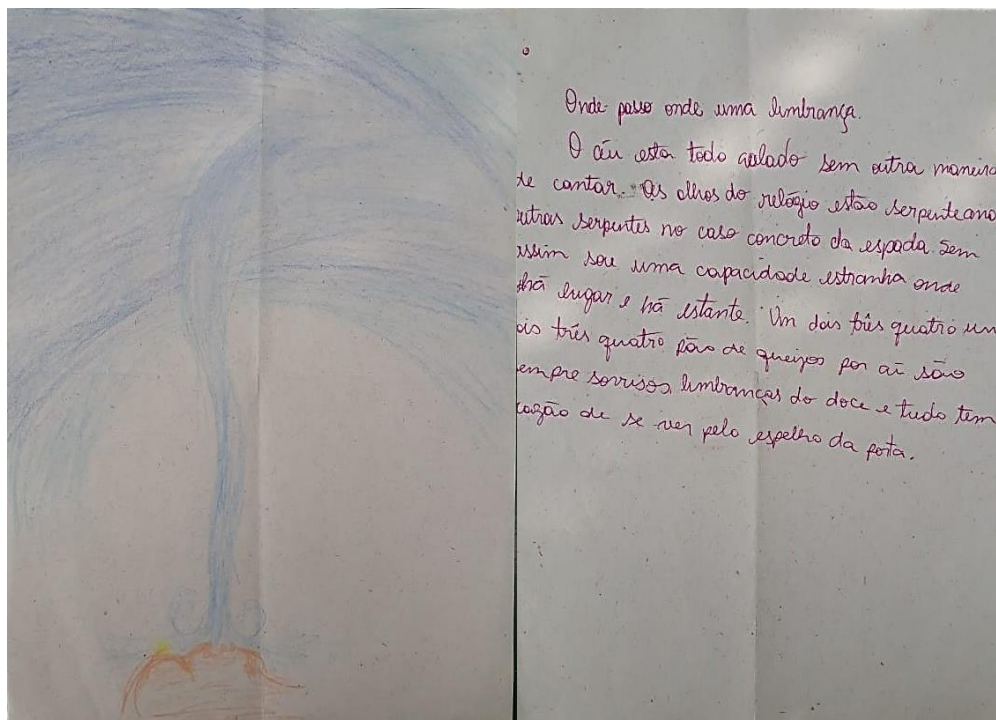 Onde passo onde uma lembrança.
O céu esta todo aolado sem outra maneira
de cantar. Os olhos do relógio estão serpenteand
utras serpentes no caso concreto da espada. Sem
assim sou uma capacidade estranha onde
há lugar e há estante. Um dois três quatro um
ois três quatro pão de queijos por aí são
empre sorrisos, lembranças do doce e tudo tem
razão de se ver pelo espelho da porta.